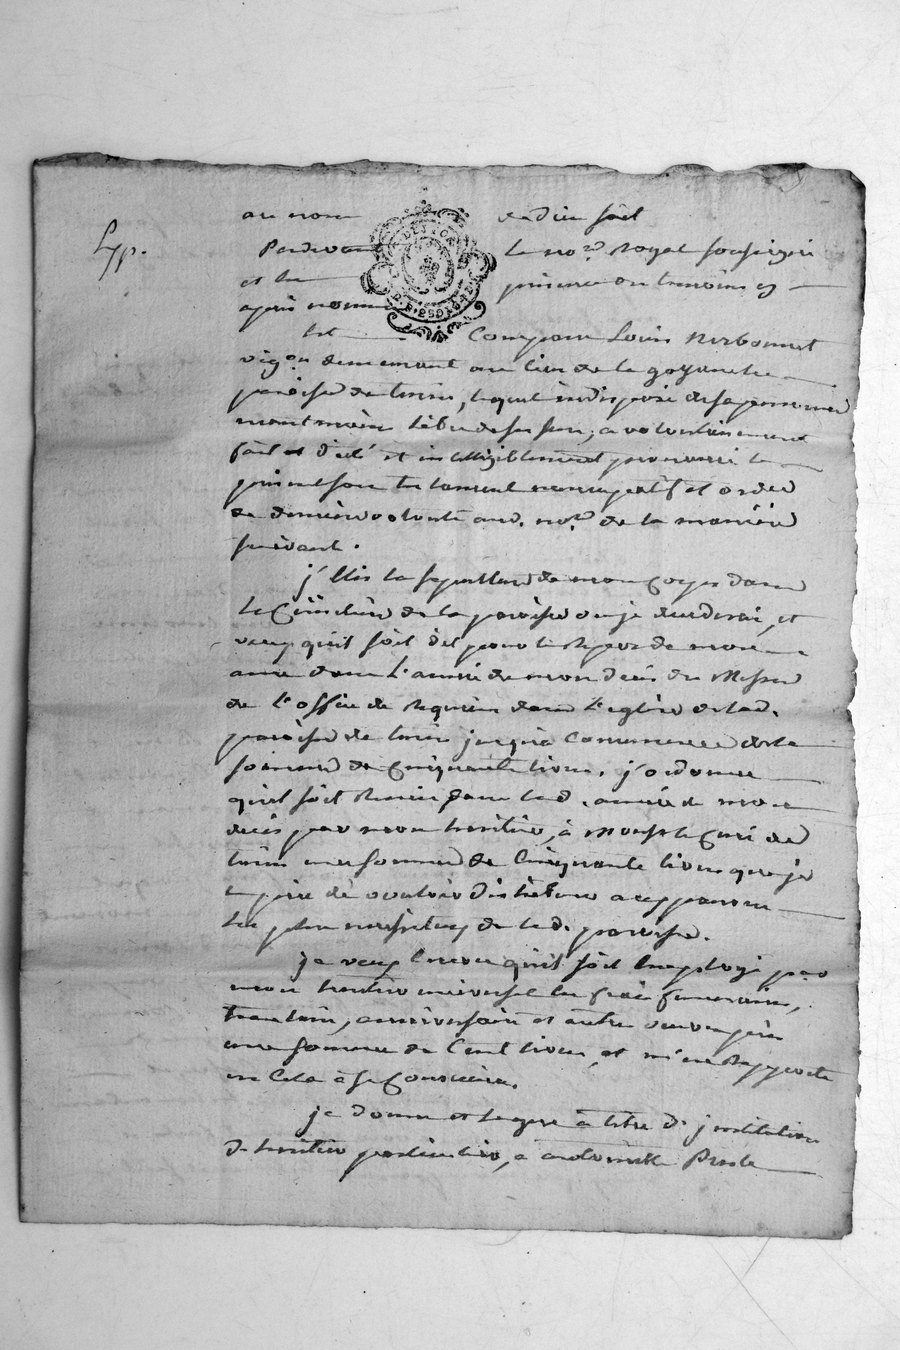 Exp.
au nom de Dieu soit
Pardevant le no.re Royal soussigné
et en presence des temoins cy
apres nommés
fut Comparu Louis Narbonnet
vig.on demeurant au lieu de la goyonette
paroisse de turin, lequel indisposé de sa personne
neantmoins libre de ses sens, a volontairement
fait et dicté et intelligiblement prononcé le
present son testament nuncupatif et ordce
de derniere volonté aud. not.re de la maniere
suivante.
j'Elis la sepulture de mon Corps dans
le Cimetiere de la paroisse ou je decederai, et
veux qu'il soit dit pour le Repos de mon
ame dans l'année de mon deces des Messes
de l'office de Requiem dans l'eglise de lad.
paroisse de turin jusqu'a Concurrence de la
somme de Cinquante livres. j'ordonne
qu'il soit Remis dans lad. année de mon
deces par mon heritier, à Mons.r le Curé de
turin une somme de Cinquante livres que je
le prie de vouloir distribuer aux pauvres
les plus necessiteux de lad. paroisse.
je veux Encore qu'il soit Employé par
mon heritier universel les frais funeraires,
trentain, anniversaire et autres œuvres pies
une somme de Cent livres, et m'en Rapporte
en Cela à sa Conscience.
je donne et legue à titre d'institution
d'heritier particulier, à antoinette